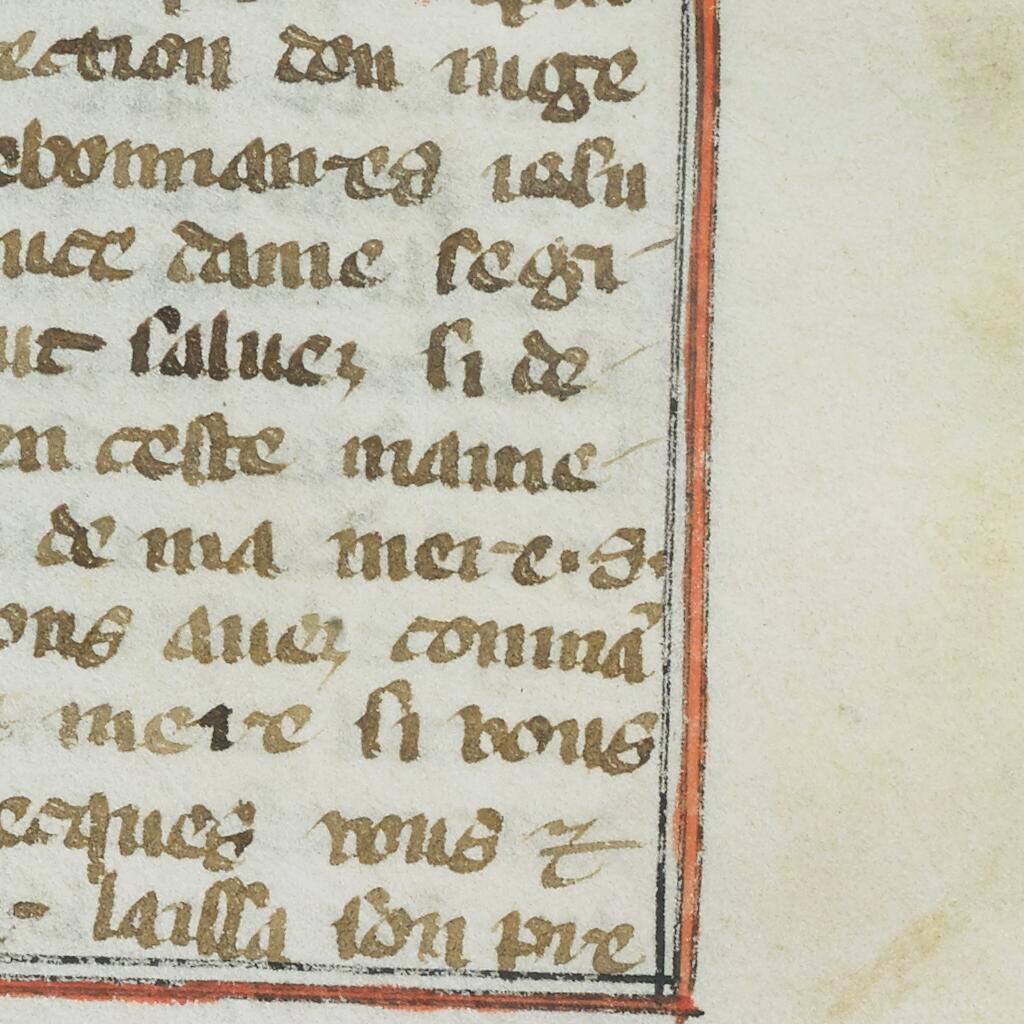 ection dou iuge
ebonnaires iesu
uice dame segi
ut saluez si de
en ceste maine
de ma mere. S.
ons auez commā
mere si vous
ecques vous ⁊
laissa son pre